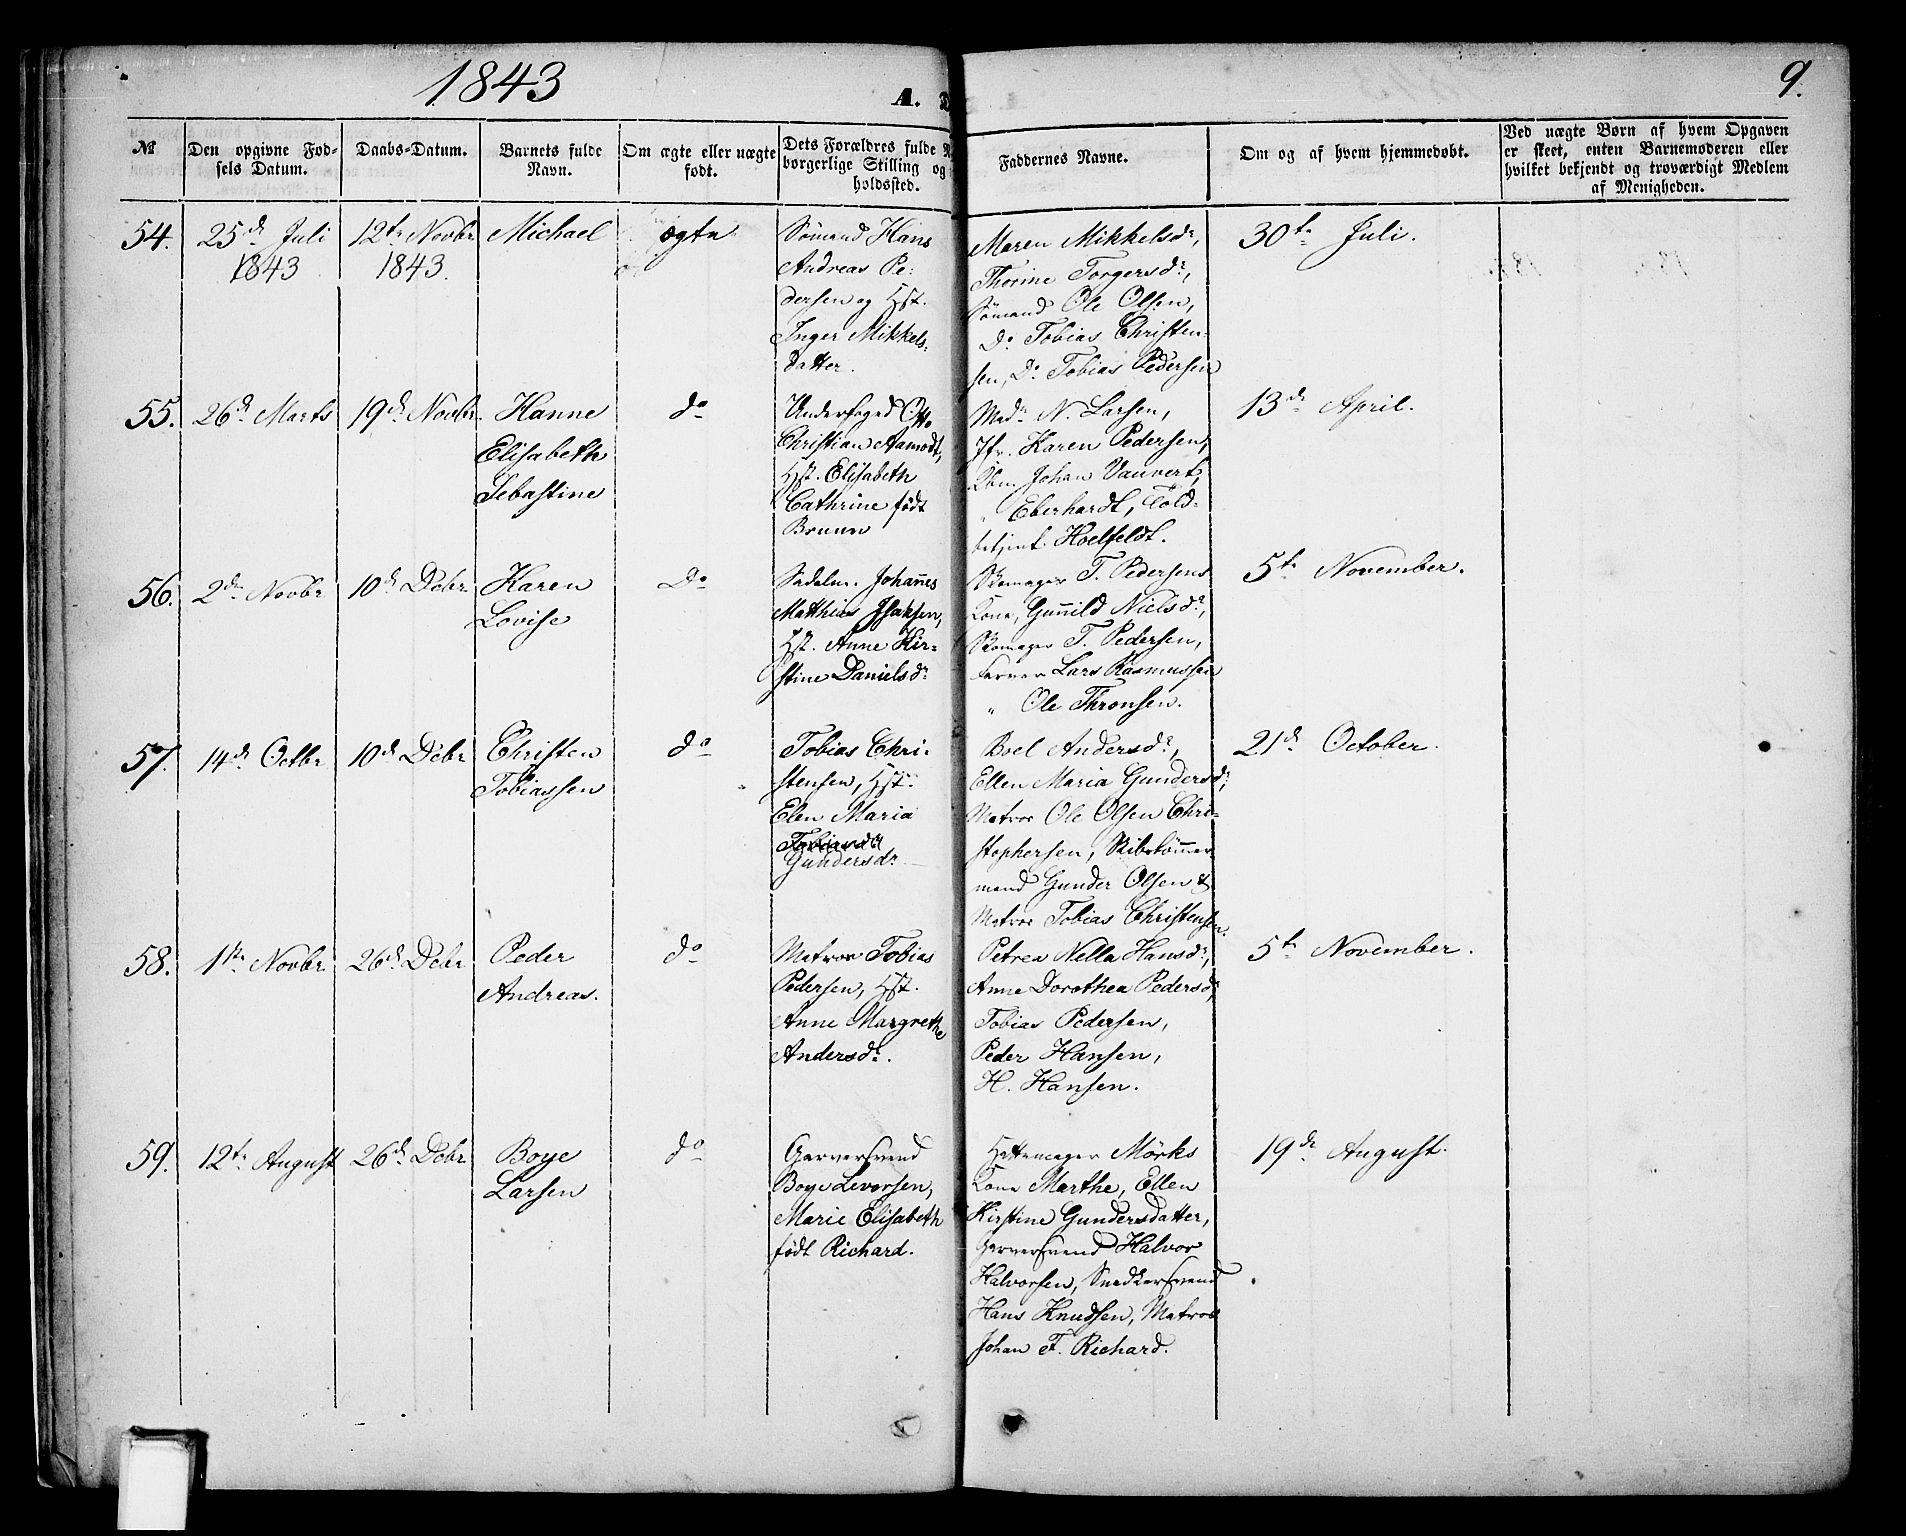 1843
A. D
9.
№
Den opgivne Fød-
sels Datum.
Daabs-Datum.
Barnets fulde
Navn.
Om ægte eller uægte
født.
Dets Forældres fulde N
borgerlige Stilling og
holdssted.
Faddernes Navne.
Om og af hvem hjemmedøbt.
Ved uægte Børn af hvem Opgaven
er skeet, enten Barnemoderen eller
hvilket bekjendt og troværdigt Medlem
af Menigheden.
54.
25de Juli
1843
12te Novbr
1843.
Michael
ægte
Sømand Hans
Andreas Pe-
dersen og Hst.
Inger Mikkels-
datter.
Maren Mikkelsdr,
Thorine Torgersdr,
Sømand Ole Olsen,
Do Tobias Christen-
sen, Do Tobias Pedersen
30te Juli.
55.
26de Marts
19de Novbr.
Hanne
Elisabeth
Sebastine
do
Underfoged Otto
Christian Aamodt,
Hst. Elisabeth
Cathrine født
Bruun
Madm N. Larsen,
Jfr. Karen Pedersen,
Kbm. Johan Vauvert,
" Eberhardt, Told-
betjent Hoelfeldt.
13de April.
56.
2den Novbr
10de Dcbr
Karen
Lovise
Do
Sadelm. Johannes
Matthias Isaksen,
Hst. Anne Kir-
stine Danielsdr
Skomager T. Pedersens
Kone, Gunnild Nielsdr,
Skomager T. Pedersen,
Farver Lars Rasmussen
" Ole Thronsen.
5te November.
57.
14de Octbr
10de Dcbr
Christen
Tobiassen
do
Tobias Chri-
stensen, Hst.
Elen Maria
Gundersdr.
Boel Andersdr,
Ellen Maria Gundersdr,
Matros Ole Olsen Chri-
stophersen, Skibstømmer-
mand Gunder Olsen &
Matros Tobias Christensen.
21de October.
58.
1ste Novbr
26de Dcbr
Peder
Andreas.
do
Matros Tobias
Pedersen, Hst.
Anne Margrethe
Andersdr.
Petrea Nella Hansdr,
Anne Dorothea Pedersdr,
Tobias Pedersen,
Peder Hansen,
H. Hansen.
5te November.
59.
12te August
26de Dcbr
Boye
Larsen
do
Garversvend
Boye Levorsen,
Marie Elisabeth
født Richard.
Hattemager Mørks
Kone Marthe, Ellen
Kirstine Gundersdatter,
Garversvend Halvor
Halvorsen, Snedkersvend
Hans Knudsen, Matros
Johan F. Richard.
19de August.